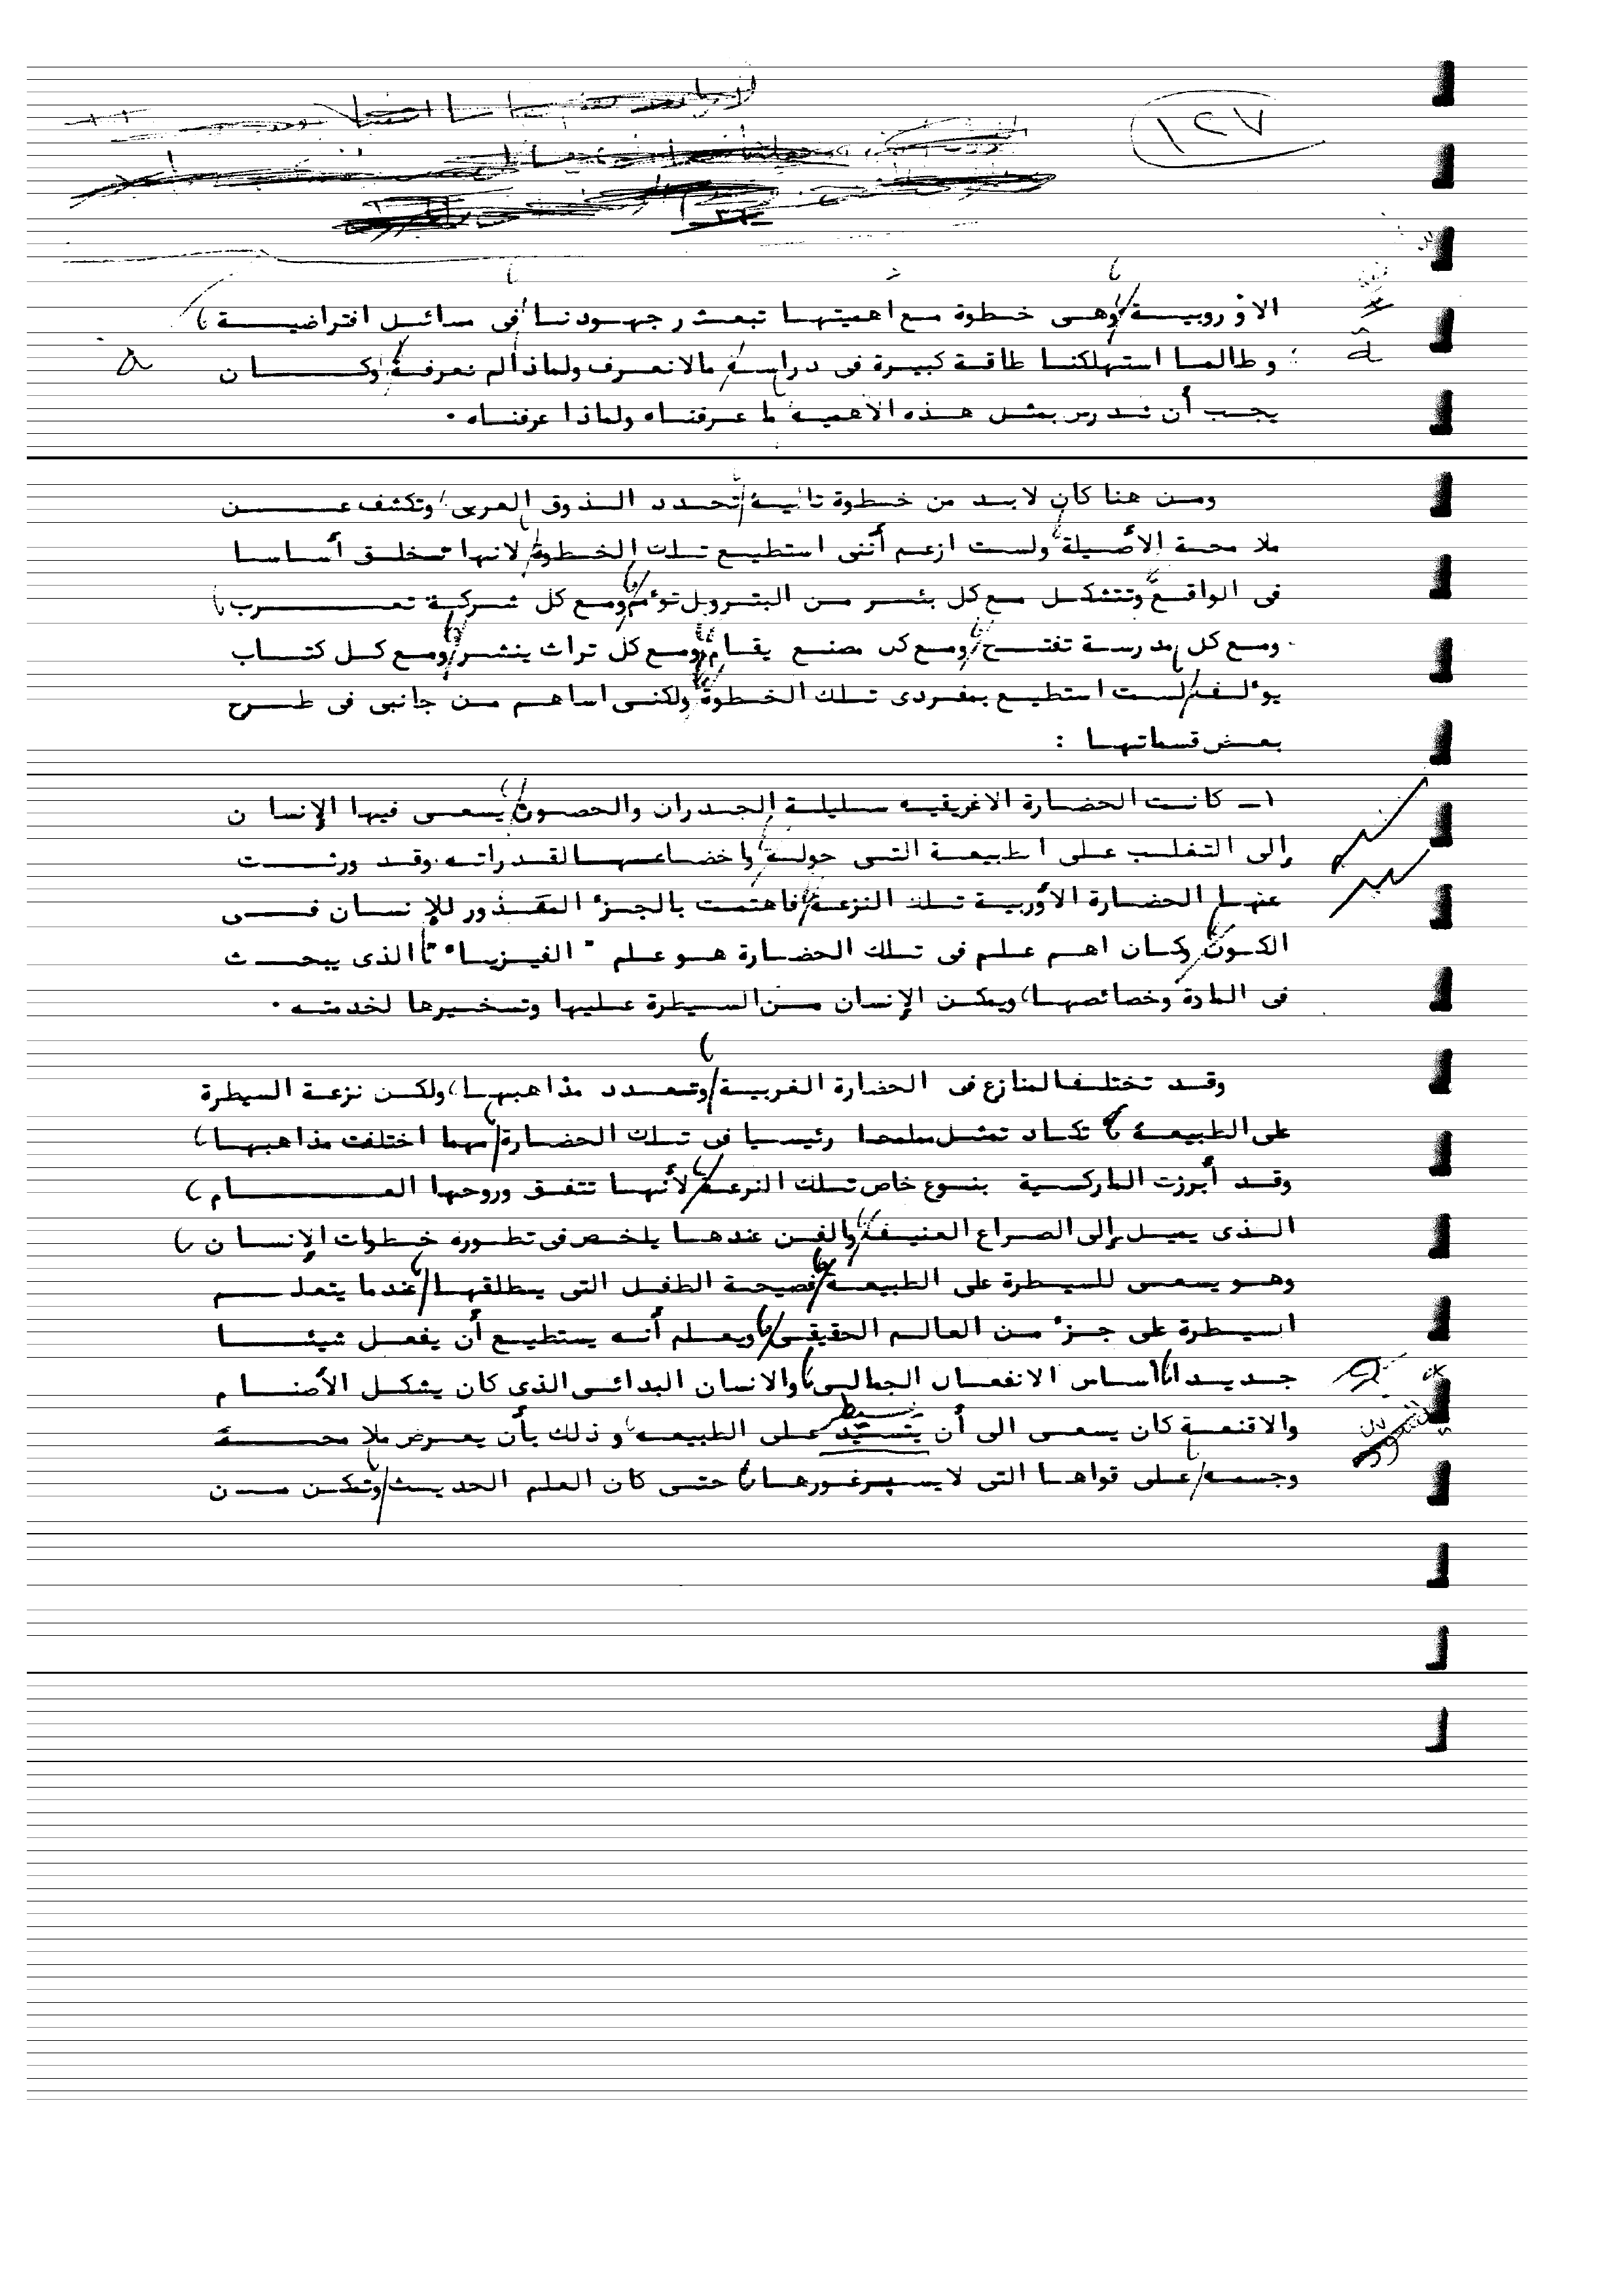 ١٢٧
الاوروبية، وهى خطوة مع اهميتها تبعثر جهودنا، فى مسائل افتراضية،
وطالما استهلكنا طاقة كبيرة فى دراسة مالانعرف ولماذا لم نعرفة، وكان
يجب أن ندرس بمثل هذه الأهمية ما عرفناه ولماذا عرفناه .
ومن هنا كان لابد من خطوة ثانية، تحدد الذوق العربى، وتكشف عن
ملامحة الأصيلة، ولست ازعم أننى استطيع تلك الخطوة، لانها تخلق أساسا
فى الواقع، وتتشكل مع كل بئر من البترول تؤمم، ومع كل شركية تعرب،
ومع كل مدرسة تفتح، ومع كل مصنع يقام، ومع كل تراث ينشر، ومع كل كتاب
يؤلف، لست استطيع بمفردى تلك الخطوة، ولكنى اساهم من جانبى فى طرح
بعض قسماتها :
١ـ كانت الحضارة الاغريقيه سليلة الجدران والحصون، يسعى فيها الإنسان
إلى التغلب على الطبيعة التى حولة، واخضاعها لقدراته. وقد ورثت
عنها الحضارة الأوربية تلك النزعة، فاهتمت بالجزء المقذور للإنسان فى
الكون، وكان اهم علم فى تلك الحضارة هو علم " الفيزياء " الذى يبحث
فى المادة وخصائصها، ويمكن الإنسان من السيطرة عليها وتسخيرها لخدمته .
وقد تختلف المنازع فى الحضارة الغربية، وتتعدد مذاهبها، ولكن نزعة السيطرة
على الطبيعة، تكاد تمثل ملمحا رئيسيا فى تلك الحضارة، مهما اختلفت مذاهبها،
وقد أبرزت الماركسية بنوع خاص تلك النزعة، لأنها تتفق وروحها العام،
الذى يميل إلى الصراع العنيف، والفن عندها يلخص فى تطوره خطوات الإنسان،
وهو يسعى للسيطرة على الطبيعة، فصيحة الطفل التى يطلقها، عندما يتعلم
السيطرة على جزء من العالم الحقيقى، ويعلم أنه يستطيع أن يفعل شيئا
جديدا، أساس الانفعال الجمالى، والانسان البدائى الذى كان يشكل الأصنام
والاقنعة كان يسعى الى أن يتسيد على الطبيعه، وذلك بأن يعرض ملامحة
وجسمه، على قواها التى لايسبر غورها، حتى كان العلم الحديث، وتمكن من